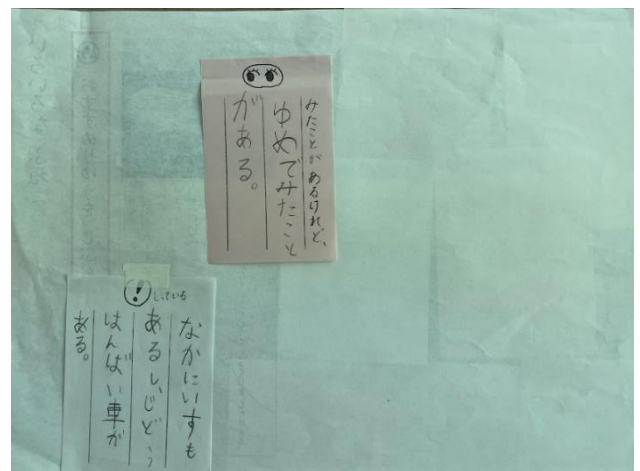 みたことがあるけれど、
ゆめでみたこと
がある。
!
している
なかにいすも
あるし、じどう
はんばい車が
ある。